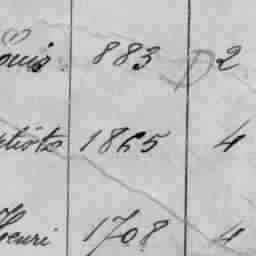 ouis 883 D 2
ptiste 1865 4
Henri 1708 4